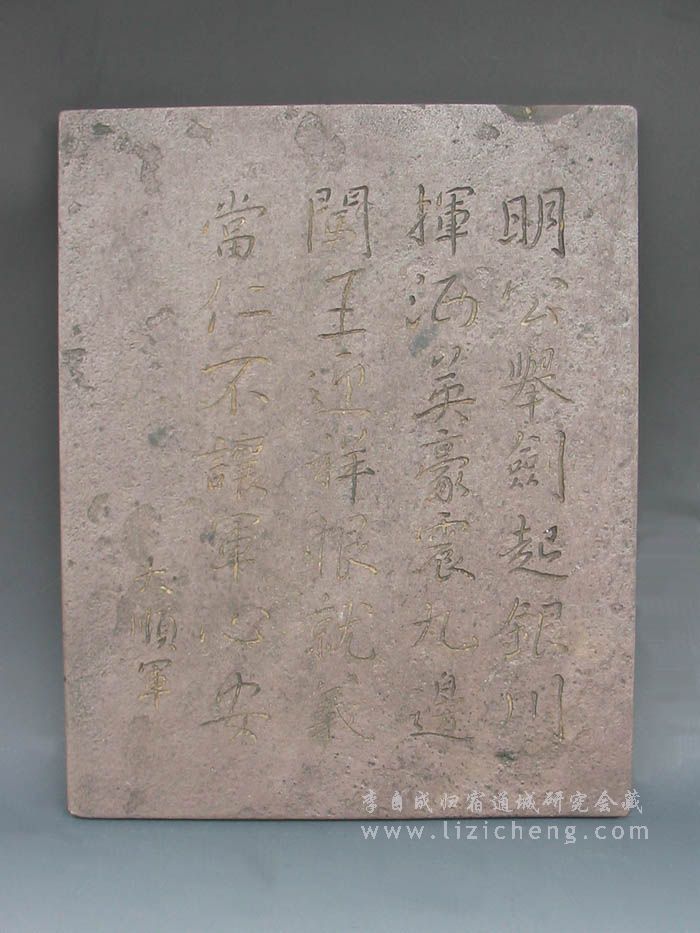 明公舉劍起銀川
揮洒英豪震九邊
闖王迎祥根就義
當仁不讓軍心安
大順軍
李自成归宿通城研究会藏
www.lizicheng.com